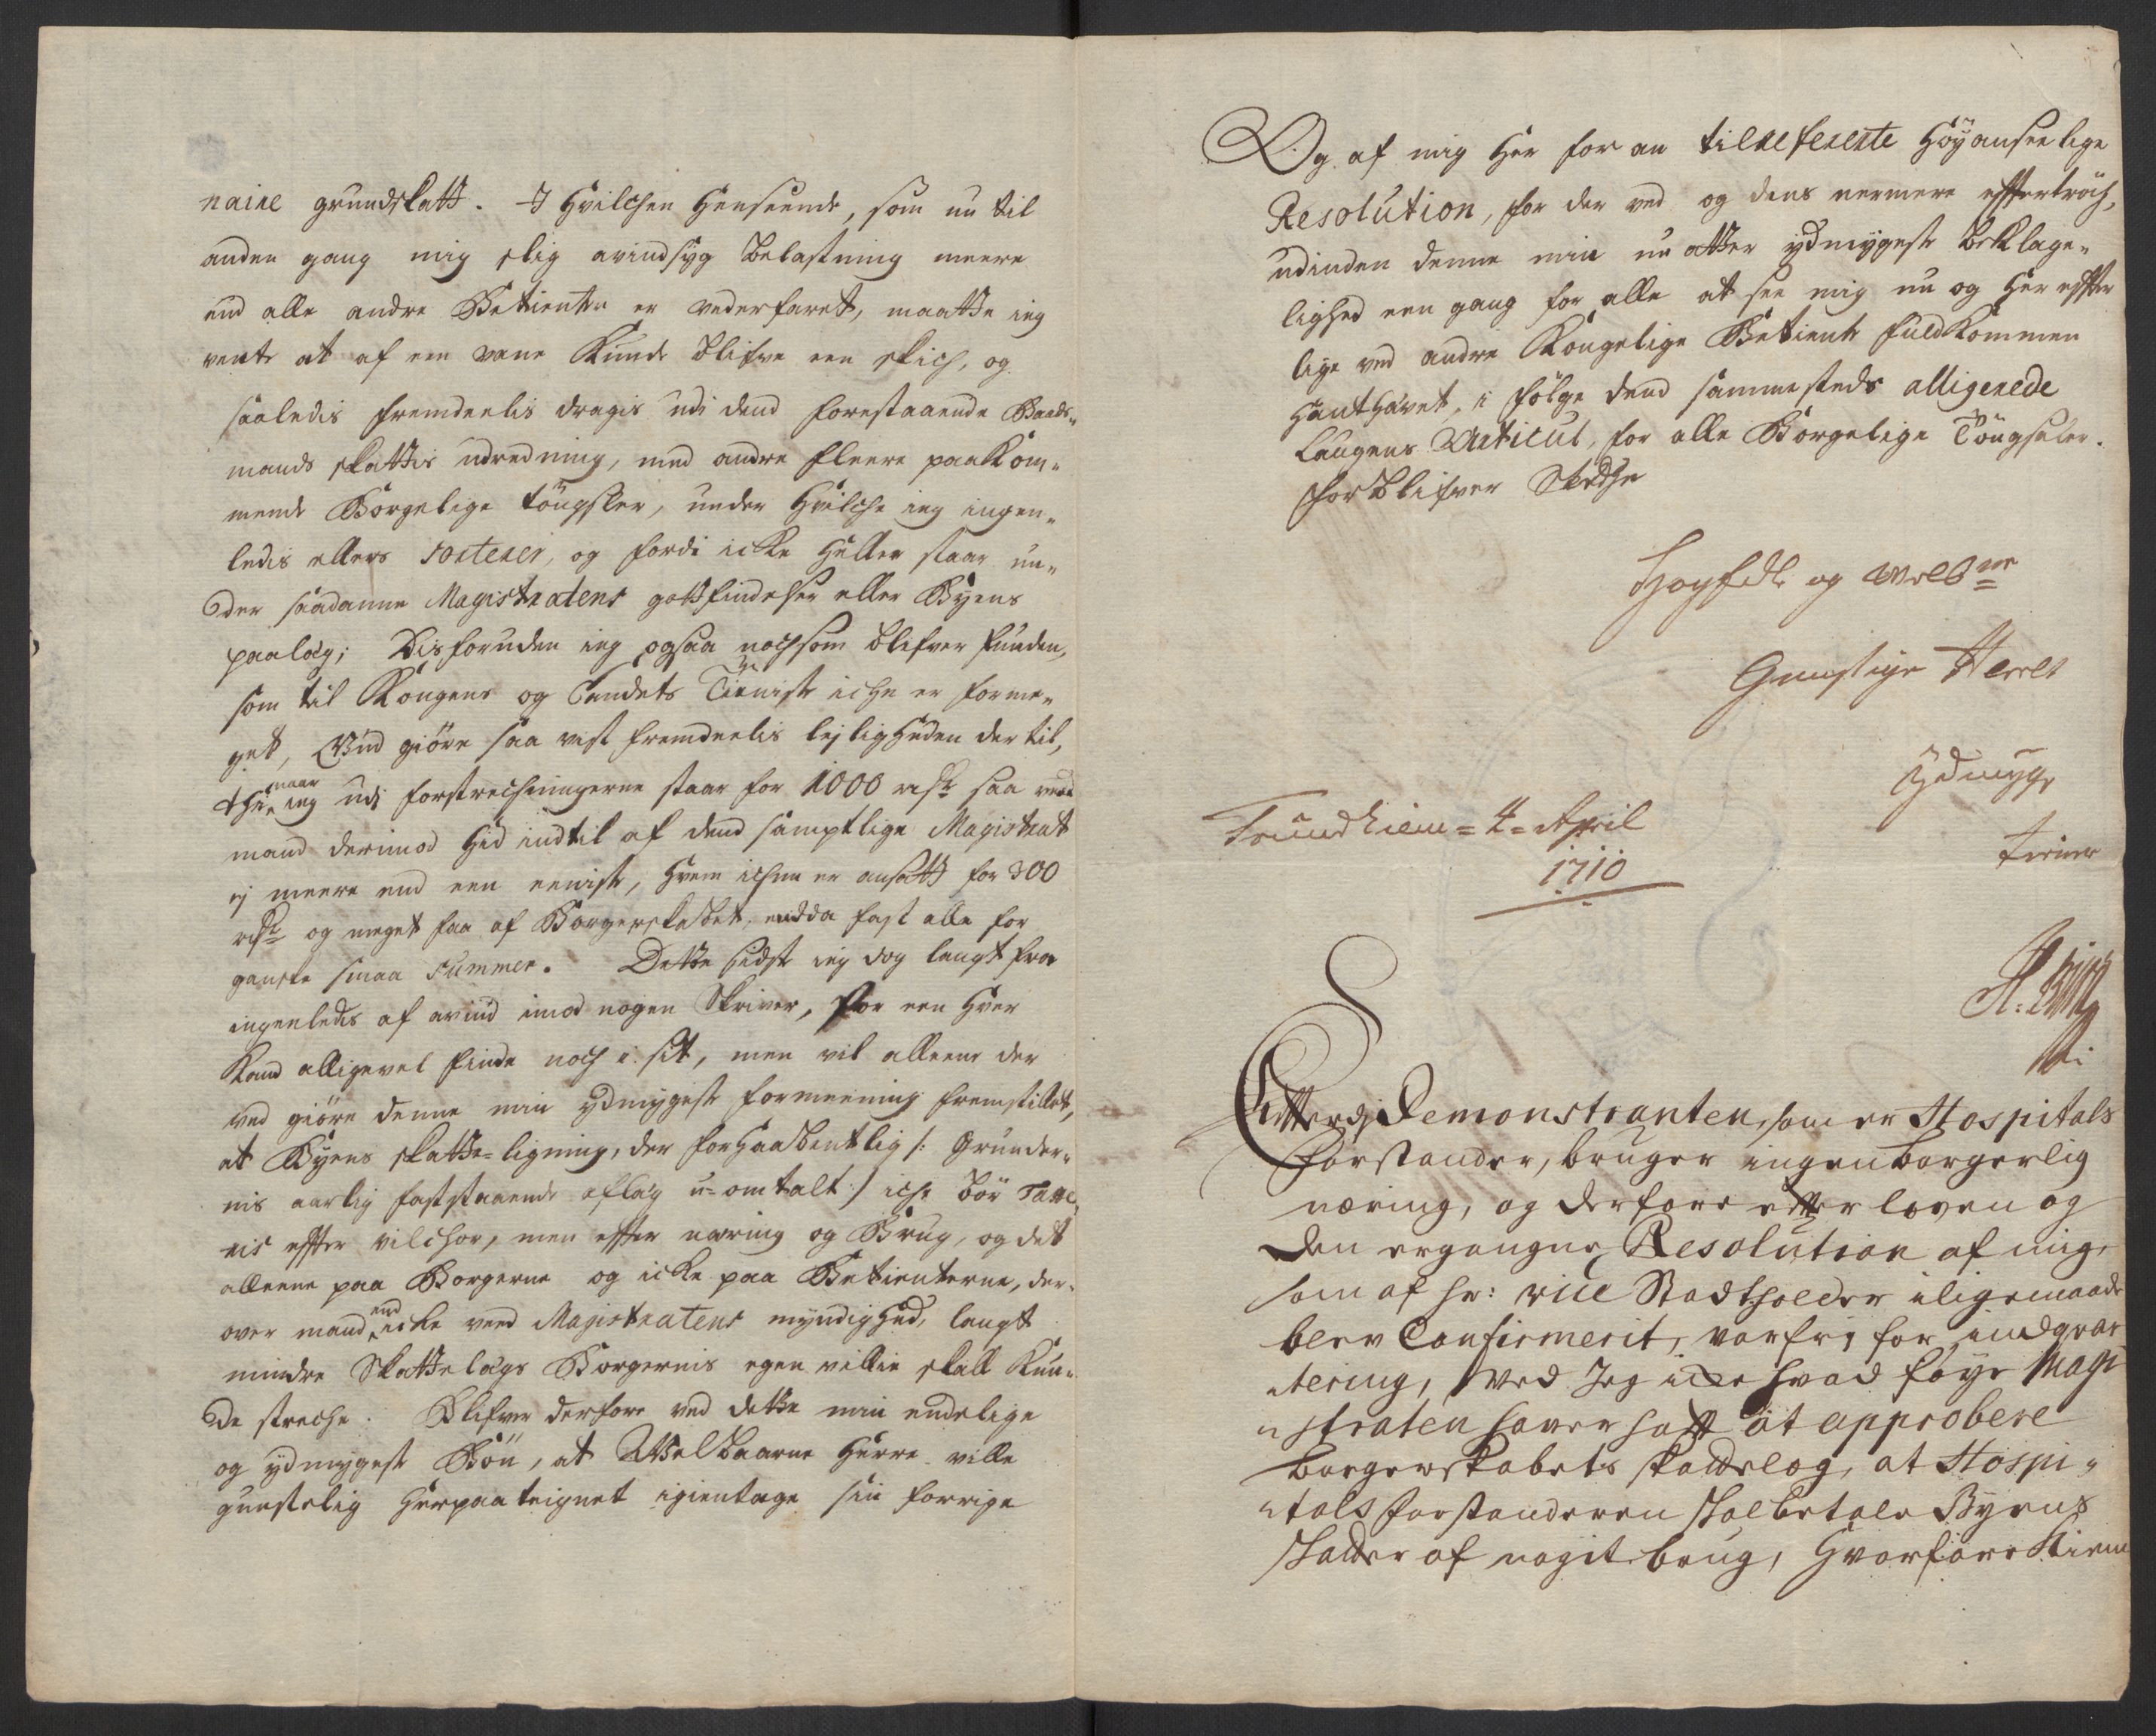 naire grundskatt. I hvilchen henseende, som nu til
anden gang mig slig avindsyg belastning meere
end alle andre Betienter er vederfaret, maatte ieg
vente at af een vane kunde blifve een skich, og
saaledis fremdeelis dragis udi dend forestaaende Baads-
mands skattis udredning, med andre fleere paakom-
mende Borgelige töngsler, under hvilche ieg ingen-
ledis ellers sorterer, og fordi icke heller staar un-
der saadanne Magistratens gottfindeher eller Byens
paalæg; Disforuden ieg ogsaa nochsom blifver funden,
som til Kongens og Landets Tieniste iche er forme-
get, Vnd giöre saa vist fremdeelis lejligheden der til,
thi naar ieg udi forstrechningerne staar for 1000 rdr saa veed
mand derimod hid indtil af dend samptlige Magistrat
ej meere end een eeniste, hvem ichun er ansatt for 300
rdr og meget faa af Borgerskabet, endda fast alle for
ganske smaa summer. Dette sidste ieg dog langt fra
ingenledes af avind imod nogen Skriver, for een hver
kand alligevel finde noch i sit, men vil alleene der
ved giöre denne min ydmygest formeening fremstillet,
at Byens skatte-ligning, der forhaabentlig /: Grunder-
nis aarlig faststaaende aflæg u-omtalt :/ iche bör Taxe-
ris effter vilchor, men effter næring og Brug, og det
alleene paa Borgerne og icke paa Betienterne, der-
over mand end icke veed Magistratens myndighed, langt
mindre Skattelægs Borgernis egen villie skall kun-
de streche. Blifver derfore ved dette min endelige
og ydmygest Bön, at Welbaarne Herre ville
gunstelig herpaateignet igientage sin forrige
Og af mig her for an tilrefererte höyanseelige
Resolution, for der ved og dens nermere effterträch,
udinden denne min nu atter ydmygeste beklage-
lighed een gang for alle at see mig nu og her effter
lige ved andre Kongelige Betiente fuldkommen
handthævet, i fölge dend sammesteds alligerede
Laugens Articul, for alle Borgelige Töngseler.
forblifver Stedse
Höyædle og Welbne
Gunstige Herres
Ydmyge
tiener
Trundhiem = 4 = April
1710
Efftterdj Demonstranten, som er Hospitals
forstander, bruger ingen borgerlig
næring, og derfore efter loven og
den ergangne Resolution af mig,
som af hr: vice Stadtholder iligemaade
blev Confirmerit, var fri for indqvar
tering, Ved Jeg icke hvad föye Magi
straten haver hafft at approbere
borgerskabets skattelæg, at Hospi-
tals forstanderen skal betale Byens
skatter af nogit brug, hvorfore hiem